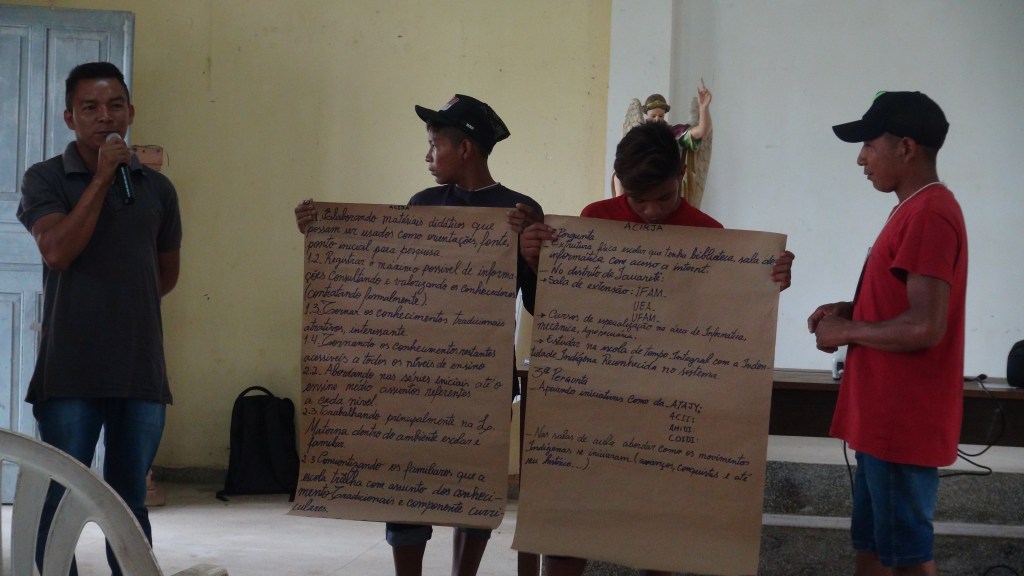 1.1 Elaborando materiais didáticos que
possam ser usados como orientações, fonte,
ponto inicial para pesquisa
1.2. Registrar o máximo possível de informa
ções Consultando e valorizando os conhecedores
(contratando formalmente).
1.3. Tornar os conhecimentos tradicionais
atrativos, interessante.
1.4. Tornando os conhecimentos existentes
acessíveis a todos os níveis de ensino
2.2. Abordando nas séries iniciais até o
ensino médio assuntos referentes
a cada nível.
2.3. Trabalhando principalmente na Lg.
Materna dentro do ambiente escolar e
familiar.
2.3 Concientizando os familiares que a
escola trabalha com assunto dos conheci-
mento Tradicionais e componente curri-
culares.
ACIRJA
Pergunta
estrutura física escolar que tenha biblioteca, sala de
informática com acesso a internt.
- No distrito de Iauaretê.
→ Sala de extensão: IFAM.
UEA.
UFAM.
→ Cursos de especialização na área de Informática,
mecânica, Agropecuária.
→ Estudar na escola de tempo Integral com a Iden
tidade Indígena Reconhecida no sistema.
3ª Pergunta
- Apoiando iniciativas como da ATAJY;
ACII;
AMIDI.
COIDI.
Nas salas de aula abordar como os movimentos
Indígenas se iniciaram (avanços, conquistas e até
seu histórico...)